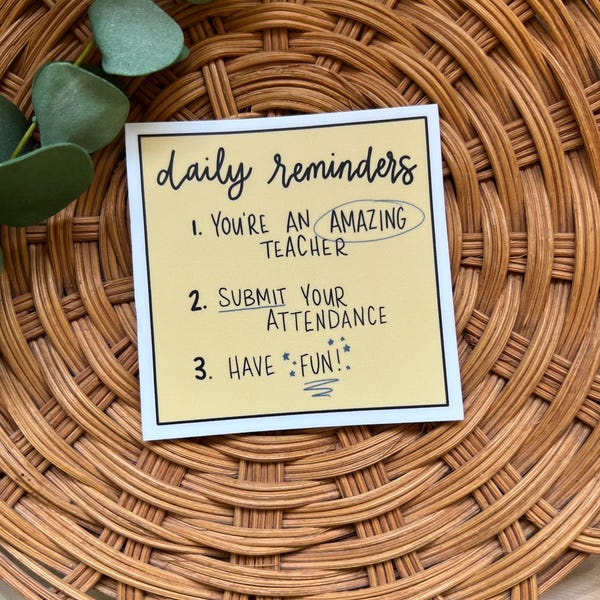 daily reminders
1. YOU'RE AN AMAZING
TEACHER
2. SUBMIT YOUR
ATTENDANCE
3. HAVE FUN!